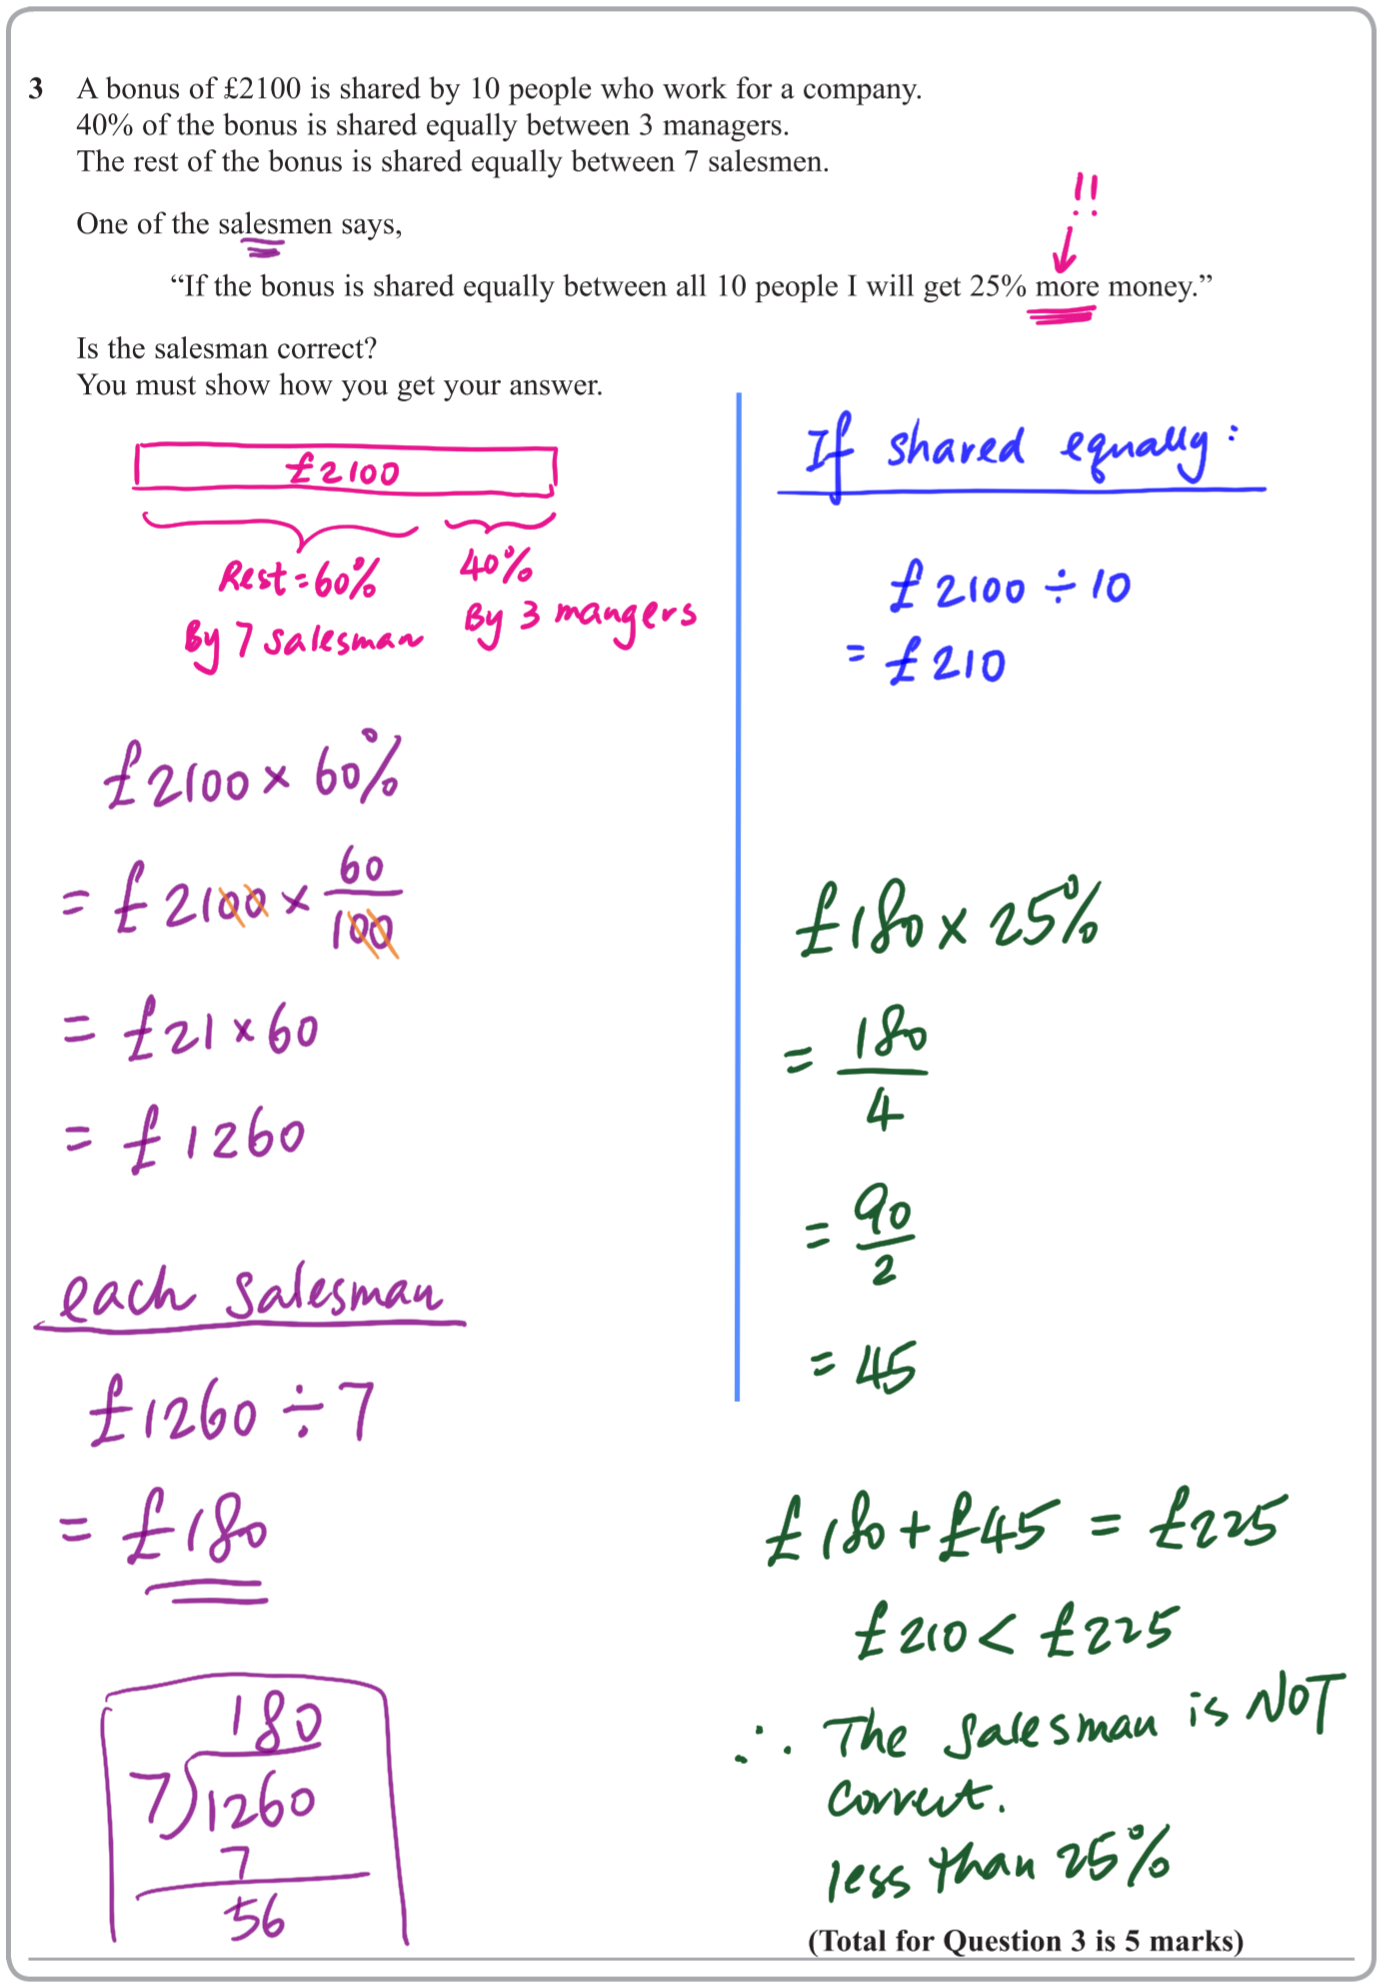 3 A bonus of £2100 is shared by 10 people who work for a company.
40% of the bonus is shared equally between 3 managers.
The rest of the bonus is shared equally between 7 salesmen.
!!
One of the salesmen says,
“If the bonus is shared equally between all 10 people I will get 25% more money.”
Is the salesman correct?
You must show how you get your answer.
£2100
Rest = 60%
By 7 salesman
40%
By 3 mangers
£2100 × 60%
= £2100 × 60/100
= £21 × 60
= £1260
each salesman
£1260 ÷ 7
= £180
180
7)1260
7
56
If shared equally:
£2100 ÷ 10
= £210
£180 × 25%
= 180/4
= 90/2
= 45
£180 + £45 = £225
£210 < £225
∴ The salesman is NOT
correct.
less than 25%
(Total for Question 3 is 5 marks)